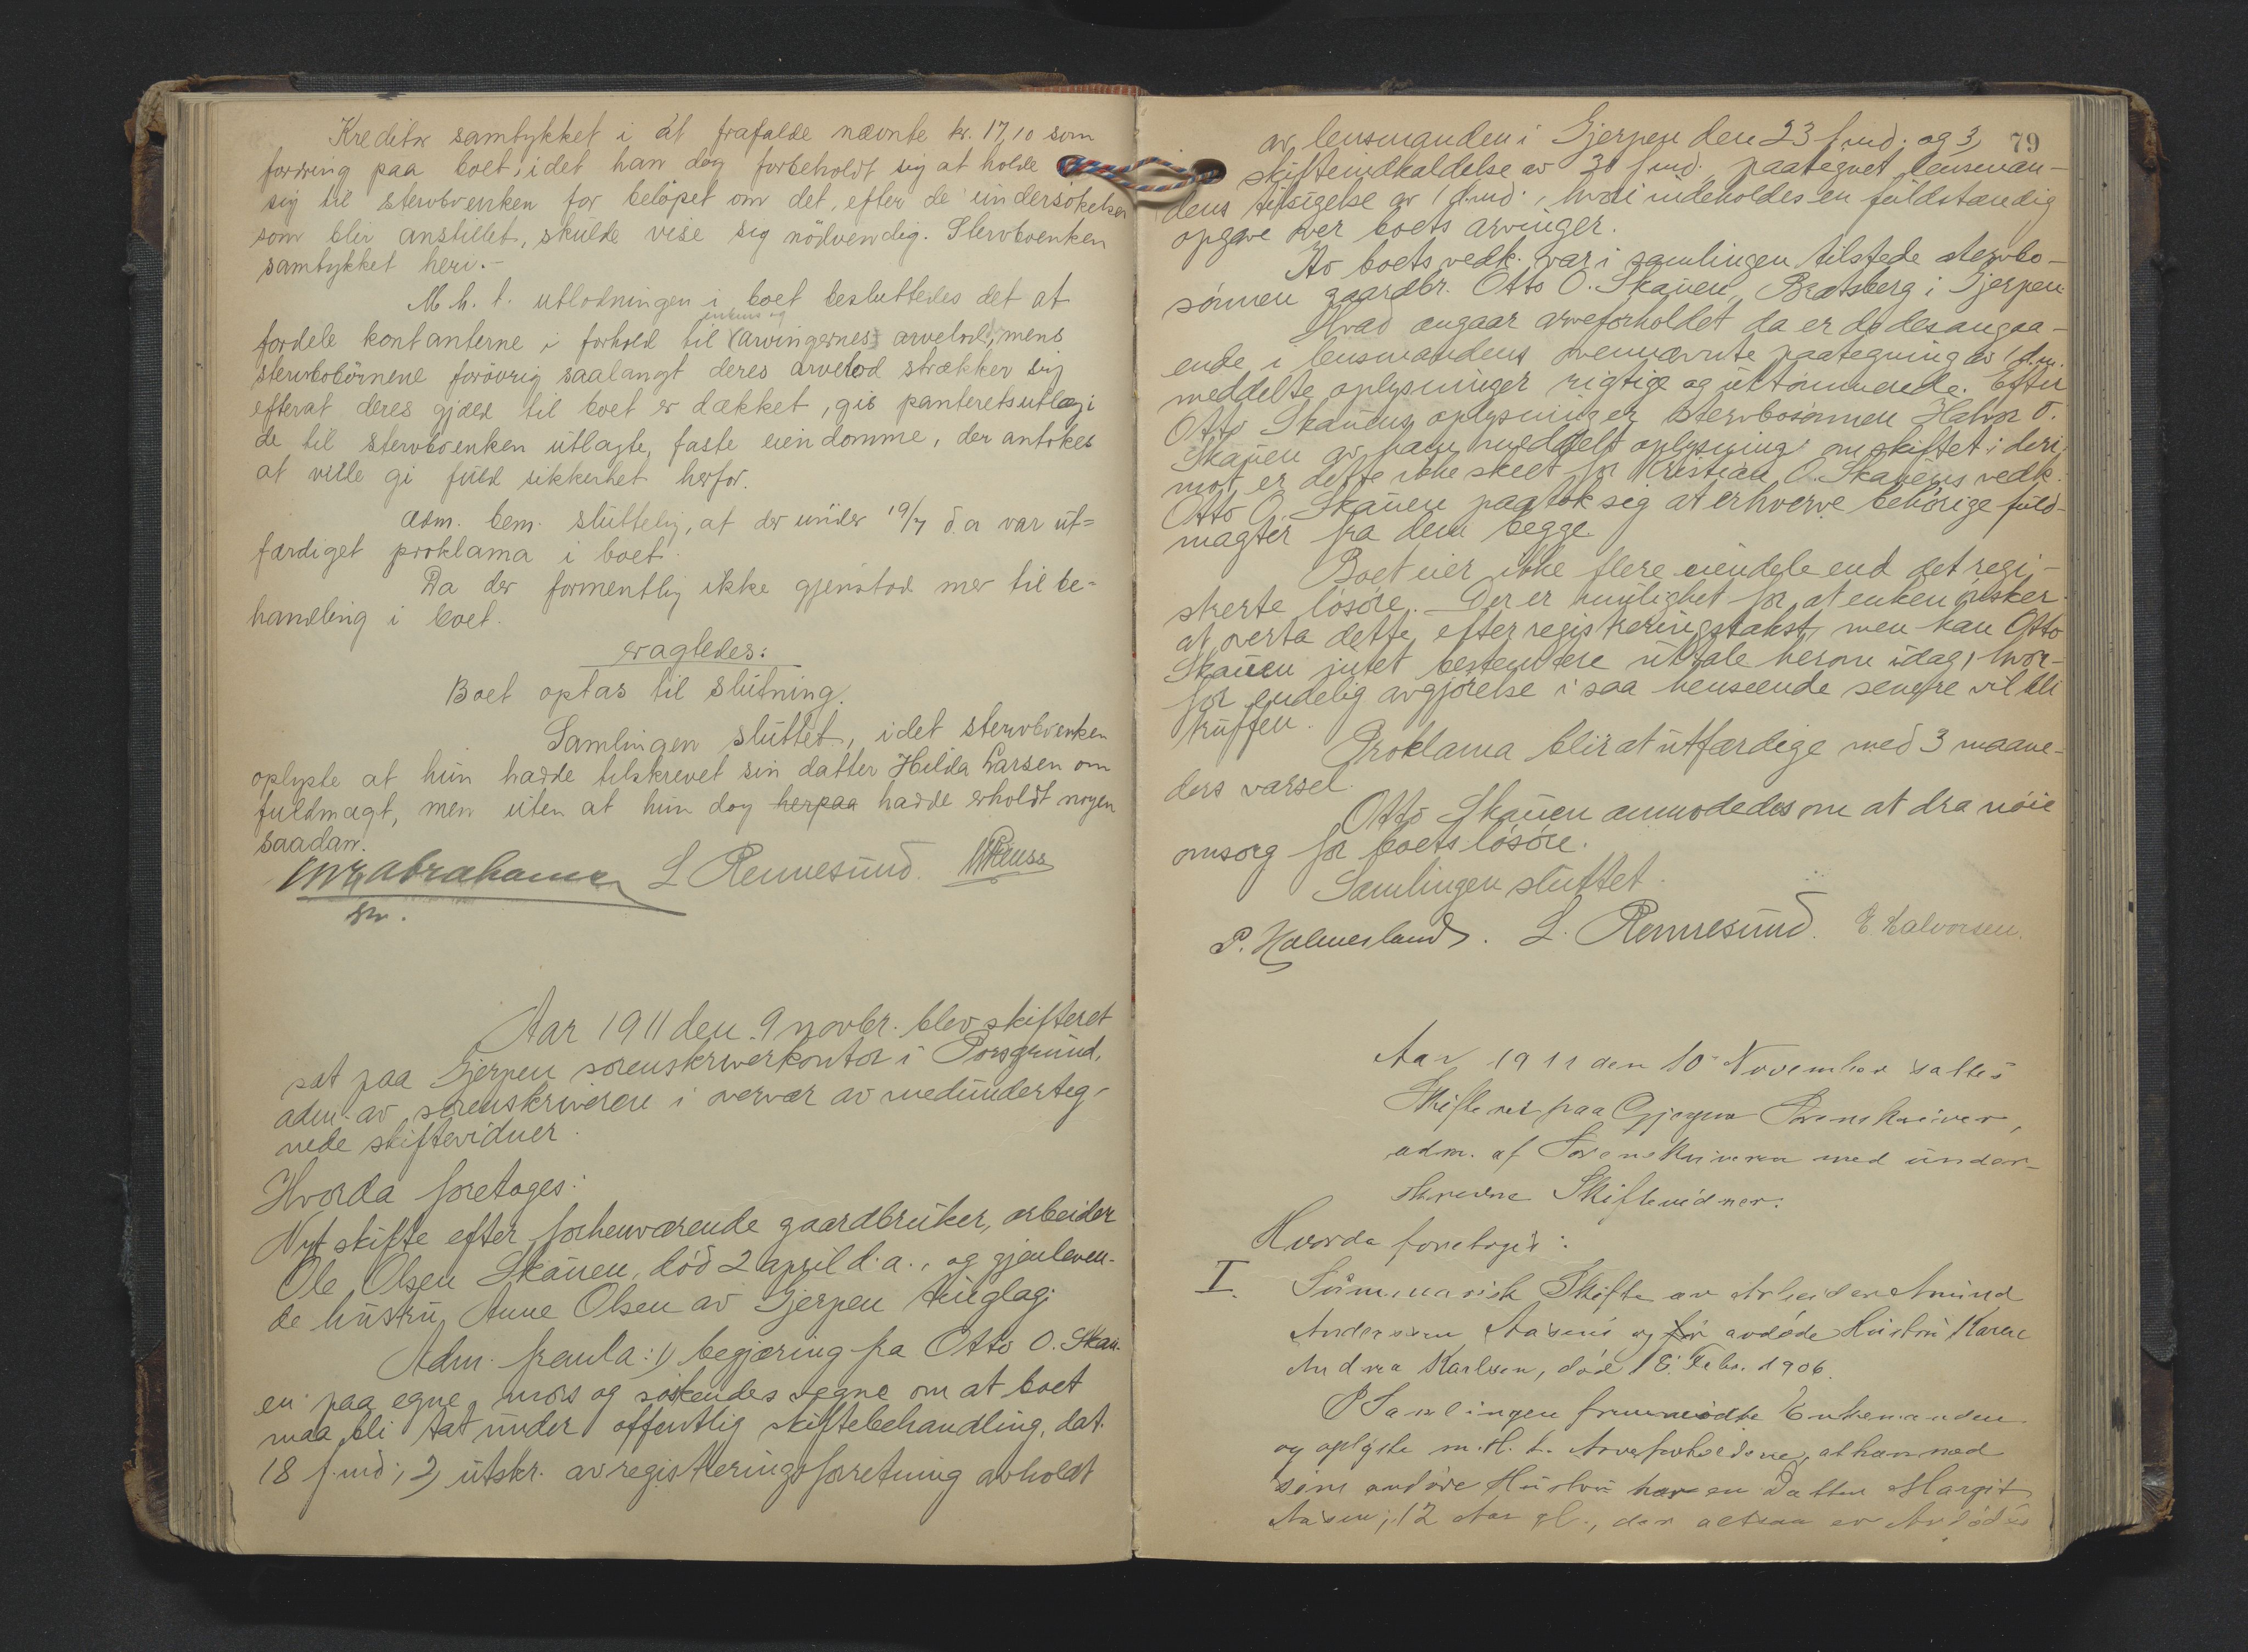 Kreditor samtykket i at frafalde nævnte kr. 17,10 som
fordring paa boet, idet han dog forbeholdt sig at holde
sig til stervboenken for beløpet om det, efter de undersøkelser
som blir anstillet, skulde vise sig nødvendig. Stervboenken
samtykket heri.-
M. h. t. utlodningen i boet besluttedes det at
enkens og
fordele kontanterne i forhold til arvingernes arvelod, mens
stervbobørnene forøvrig saalangt deres arvelod strækker sig
efterat deres gjæld til boet er dækket, gis panteretsutlæg i
de til stervboenken utlagte, faste eiendomme, der antokes
at ville gi fuld sikkerhet herfor.
Adm. bem. sluttelig, at der under 19/7 d.a var ut=
færdiget proklama i boet.
Da der formentlig ikke gjenstod mer til be=
handling i boet.
eragtedes:
Boet optas til slutning.
Samlingen sluttet, idet stervboenken
oplyste at hun hadde tilskrevet sin datter Hilda Larsen om
fuldmagt, men uten at hun dog herpaa hadde erholdt nogen
saadan.
Abrahamsen L Rennesund.
Aar 1911 den 9 novbr. blev skifteret
sat paa Gjerpen sorenskriverkontor i Porsgrund,
adm. av sorenskriveren i overvær av medunderteg-
nede skiftevidner.
Hvorda foretoges:
Nyt skifte efter forhenværende gaardbruker, arbeider
Ole Olsen Skauen, død 2 april d.a., og gjenleven-
de hustru Anne Olsen av Gjerpen tinglag.
Adm. fremla: 1) begjæring fra Otto O. Skau-
en paa egne, mors og søskendes vegne om at boet
maa bli tat under offentlig skiftebehandling, dat.
18 f. md; 2) utskr. av registreringsforretning avholdt
79
av lensmanden i Gjerpen den 23 f. md. og 3)
skifteindkaldelse av 30 f. md. paategnet lensman-
dens tilsigelse av 1 d. md., hvori indeholdes en fuldstændig
opgave over boets arvinger.
Av boets vedk. var i samlingen tilstede stervbo-
sønnen gaardbr. Otto O. Skauen, Bratsberg i Gjerpen.
Hvad angaar arveforholdet da er de desangaa-
ende i lensmandens ovennævnte paategning av 1 d.m.
meddelte oplysninger rigtige og uttømmende. Efter
Otto Skauens oplysninger er stervbosønnen Halvor O.
Skauen av ham meddelt oplysning om skiftet; deri-
mot er dette ikke skeet for Kristian O. Skauens vedk.
Otto O. Skauen paatok sig at erhverve behørige fuld-
magter fra dem begge.
Boet eier ikke flere eiendele end det regi-
strerte løsøre. Der er mulighet for, at enken ønsker
at overta dette efter registreringstakst, men kan Otto
Skauen intet bestemtere uttale herom idag, hvor-
for endelig avgjørelse i saa henseende senere vil bli
truffen.
Proklama blir at utfærdige med 3 maane-
ders varsel.
Otto Skauen anmodedes om at dra nøie
omsorg for boets løsøre.
Samlingen sluttet.
P. Holmesland. L. Rennesund. E. Halvorsen.
Aar 1911 den 10 November sattes
Skifteret paa Gjerpen Sorenskriver,
adm. af Sorenskriveren med under-
skrevne Skiftevidner.
Hvorda foretoges:
I. Summarisk Skifte av Arbeider Amund
Andersen Aasens og før avdøde Hustru Karen
Andrea Karlsen, død 18. Febr. 1906.
I Samlingen fremmødte Enkemanden
og oplyste m. H. t. Arveforholdene, at han med
sin avdøde Hustru har en Datter Margit
Aasen, 12 Aar gl., der altsaa er Avdødes